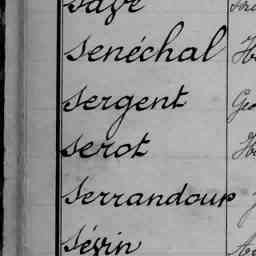 Save
Senéchal
Sergent
Serot
Serrandour
Sévin